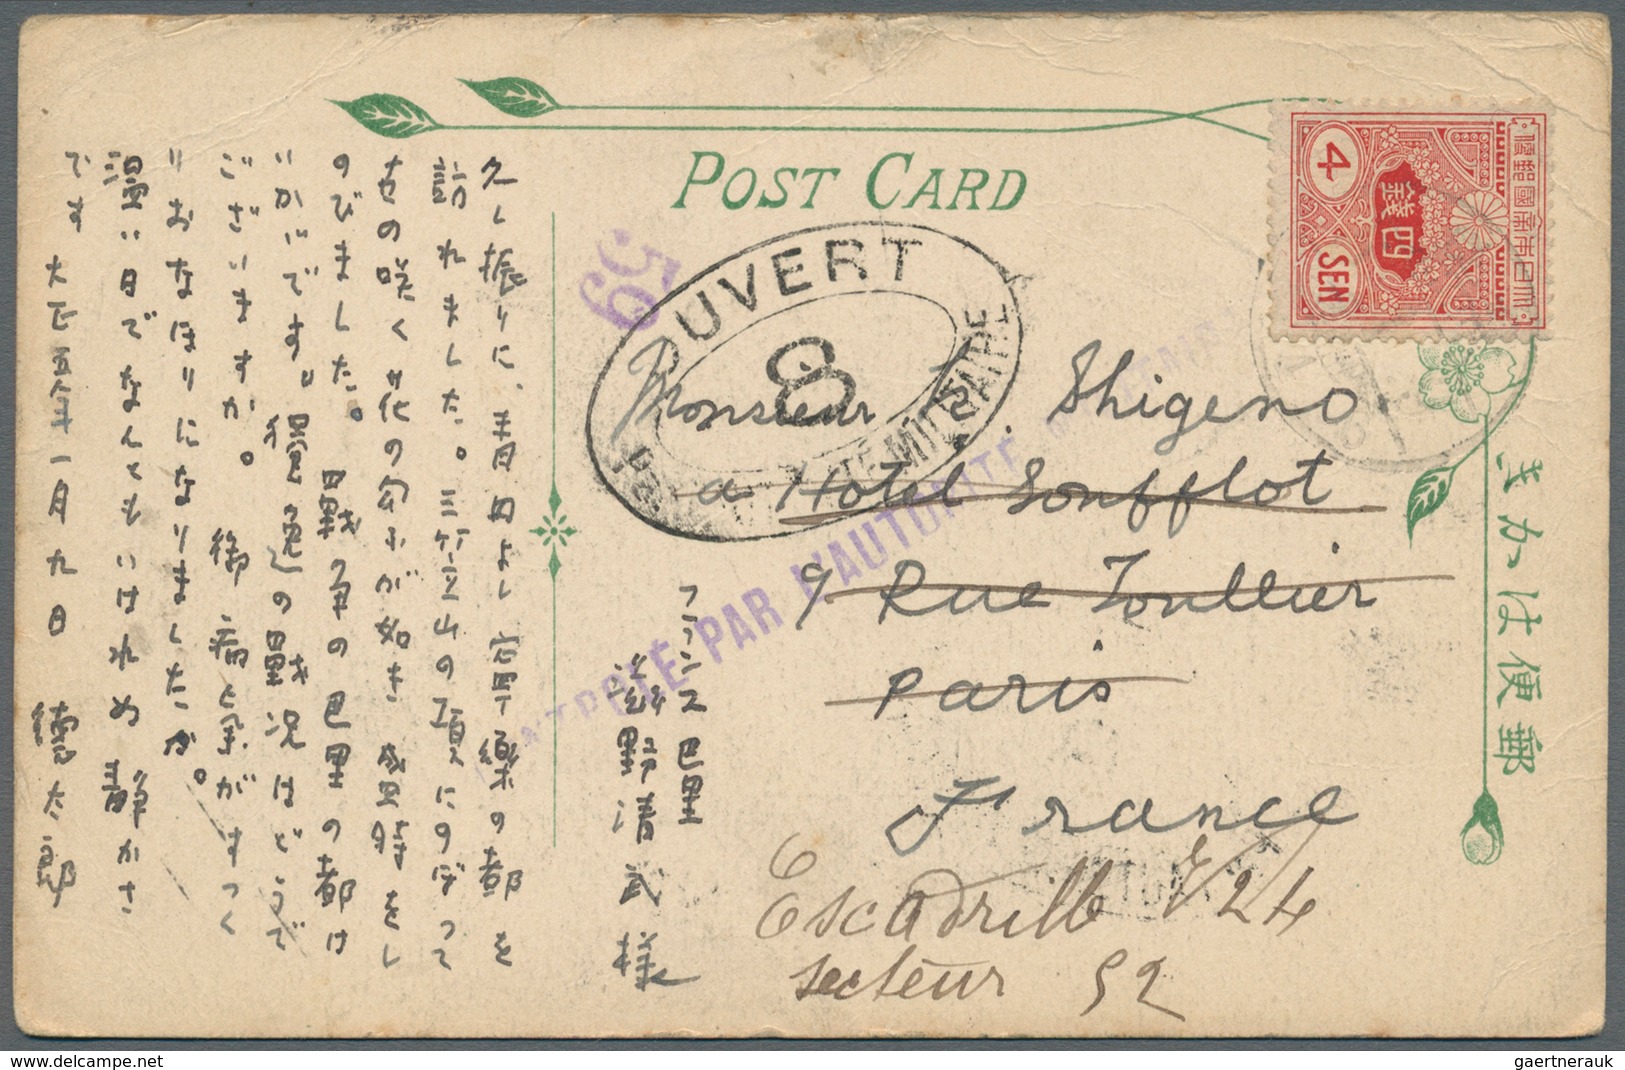 POST CARD
きかは便郵
大日本帝國郵便
四銭
4
SEN
59
OUVERT
8
MILITAIRE
PAR L'AUTORITÉ
Monsieur K. Shigeno
a Hotel Soufflot
9 Rue Toullier
Paris
France
Escadrille V 24
secteur 92
フランス巴里
滋野清武様
久し振りに、青丹よし寧樂の都を
訪れました。三笠山の頂にのぼって
古の咲く花の匂ふが如き盛時をし
のびました。 戰争の巴里の都は
いかゞです。
の戰况はどうで
ございますか。 御病氣がすつく
りおなほりになりましたか。
温い日でなんともいはれぬ静かさ
です 大正五年一月九日 德太郎
gaertnerauk
Tous droits réservés sur delcampe.net